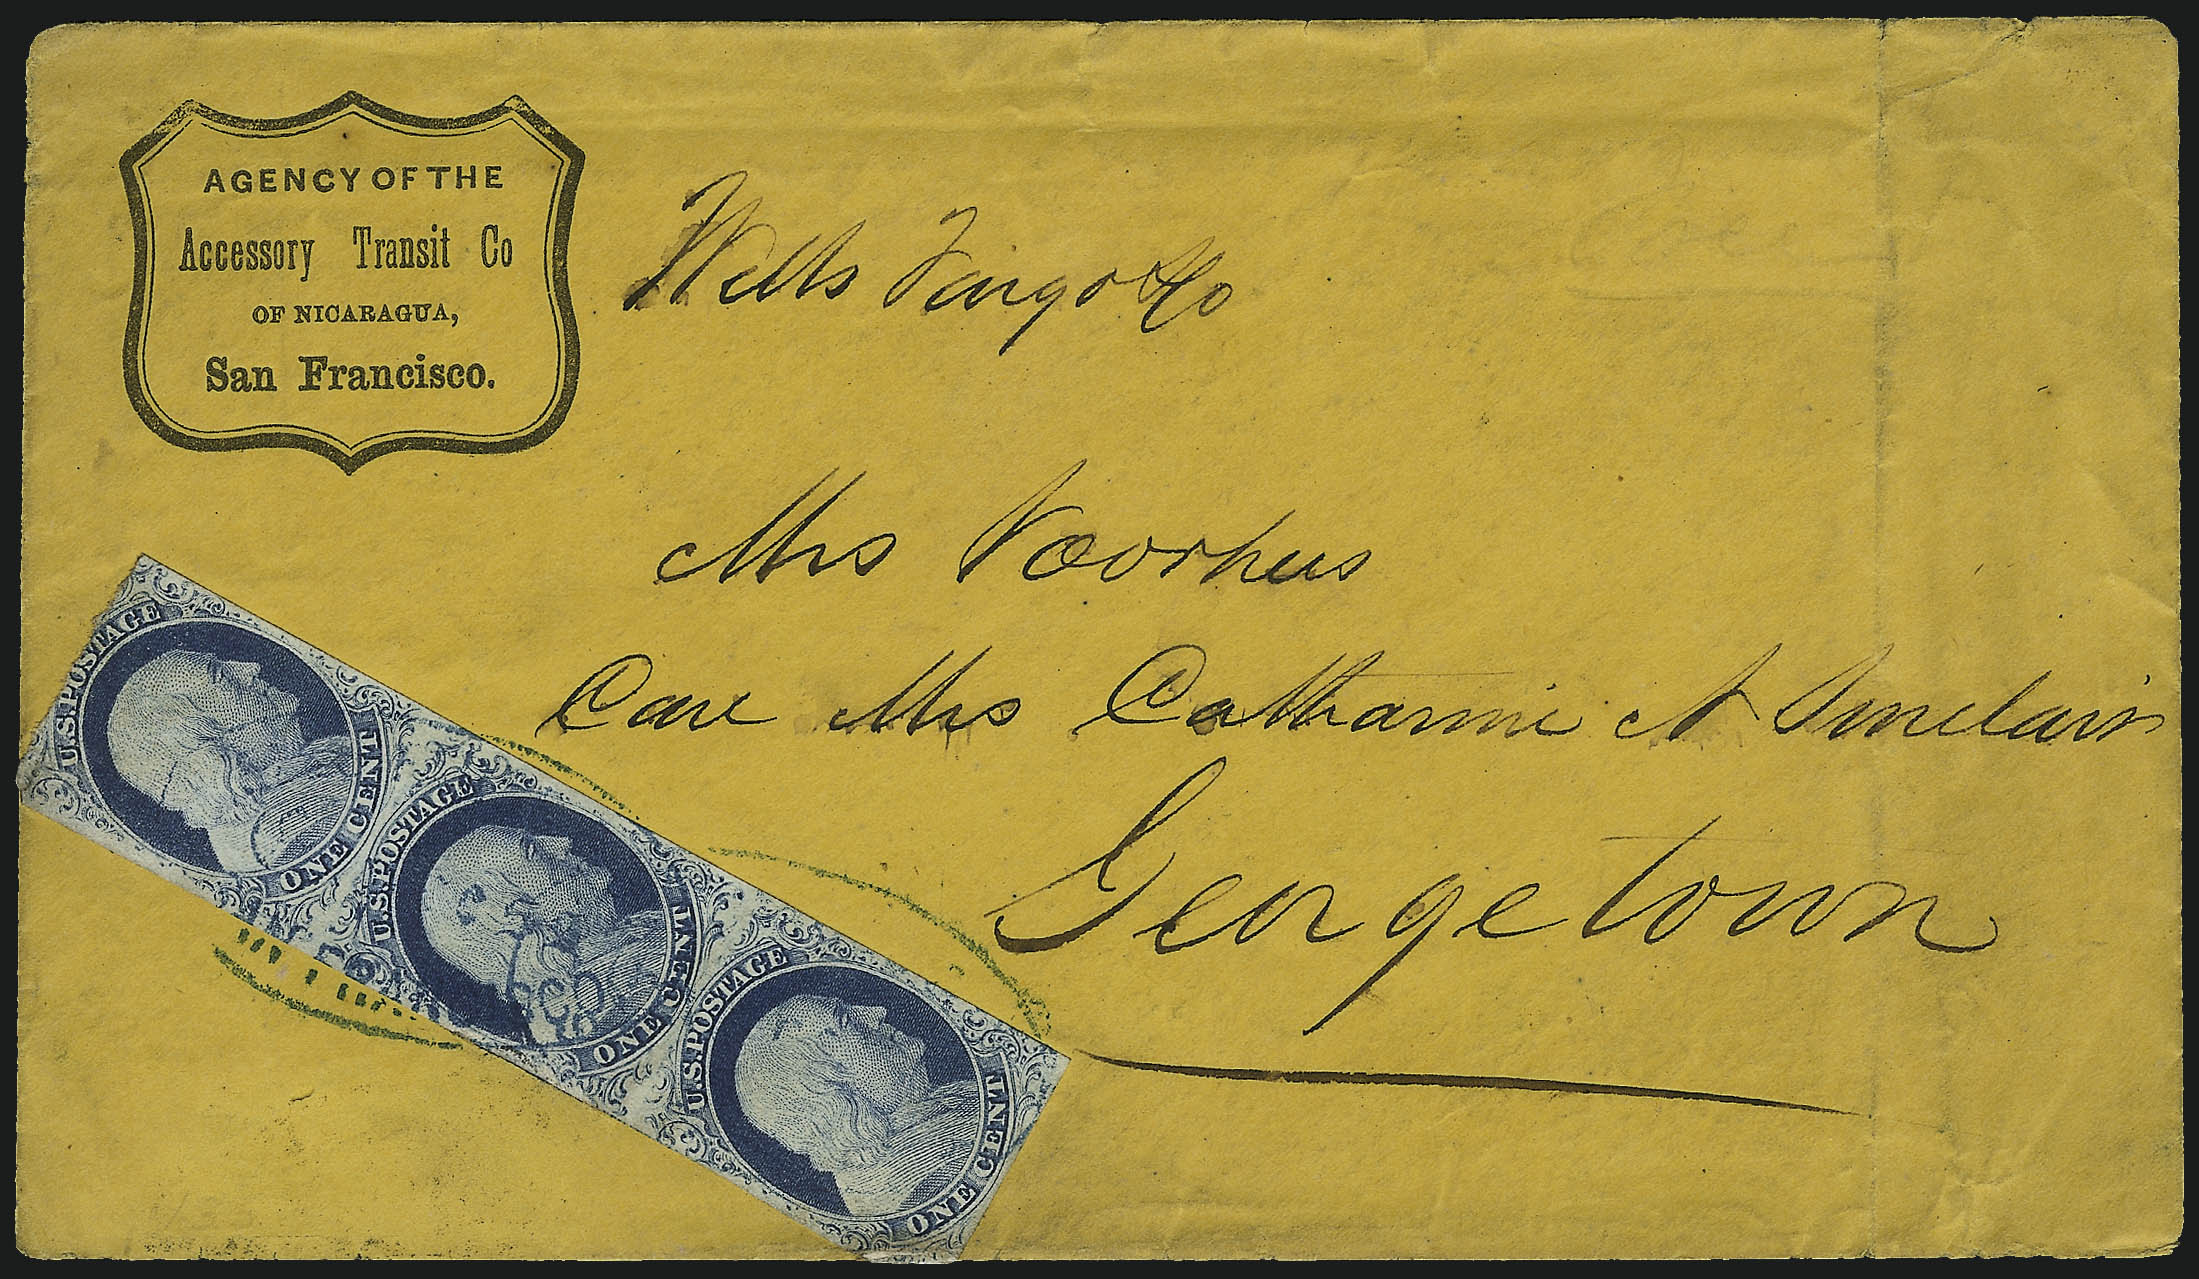 AGENCY OF THE
Accessory Transit Co
OF NICARAGUA,
San Francisco.
Wells Fargo & Co
Mrs Voorhees
Care Mrs Catharine N Sinclair
Georgetown
U.S. POSTAGE
ONE CENT
U.S. POSTAGE
ONE CENT
U.S. POSTAGE
ONE CENT